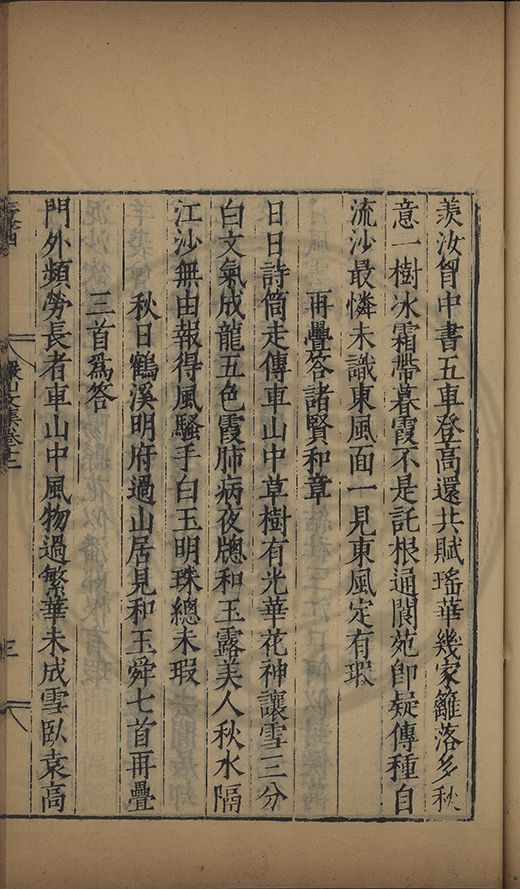 羨汝胷中書五車登高還共賦瑤華幾家籬落多秋
意一樹冰霜帶暮霞不是託根通閬苑卽疑傳種自
流沙最憐未識東風面一見東風定有瑕
再疊答諸賢和章
日日詩筒走傳車山中草樹有光華花神讓雪三分
白文氣成龍五色霞肺病夜牕和玉露美人秋水隔
江沙無由報得風騷手白玉明珠總未瑕
秋日鶴溪明府過山居見和玉舜七首再疊
三首爲答
門外頻勞長者車山中風物過繁華未成雪臥袁高
三